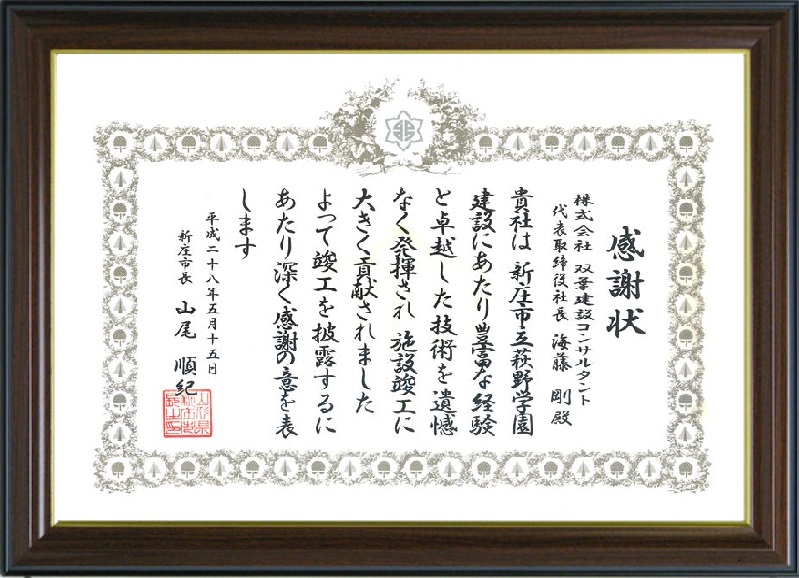 感謝状
株式会社 双葉建設コンサルタント
代表取締役社長 海藤 剛殿
貴社は 新庄市立萩野学園
建設にあたり豊富な経験
と卓越した技術を遺憾
なく発揮され 施設竣工に
大きく貢献されました
よって竣工を披露するに
あたり深く感謝の意を表
します
平成二十八年五月十五日
新庄市長 山尾 順紀